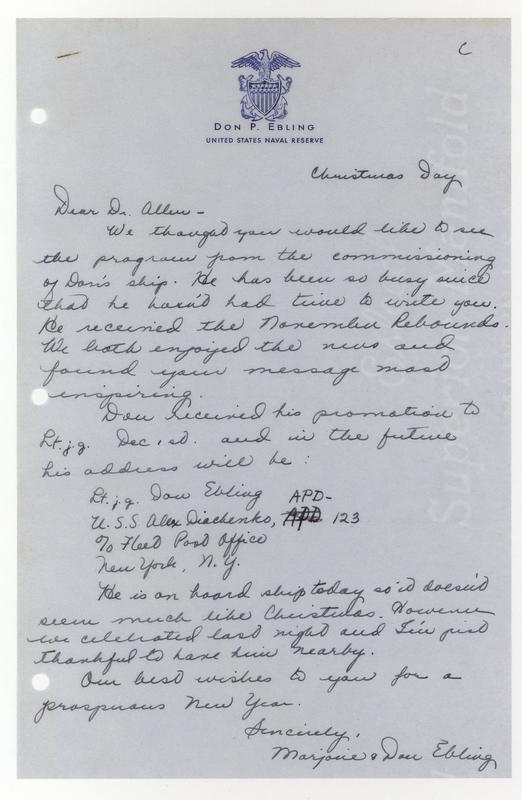 C
DON P. EBLING
UNITED STATES NAVAL RESERVE
Christmas Day
Dear Dr. Allen –
We thought you would like to see
the program from the commissioning
of Don's ship. He has been so busy since
that he hasn't had time to write you.
He received the November Rebounds.
We both enjoyed the news and
found your message most
inspiring.
Don received his promotion to
Lt. j.g. Dec. 1st. and in the future
his address will be:
Lt. j.g. Don Ebling
U.S.S Alex Diachenko, APD- 123
c/o Fleet Post Office
New York, N.Y.
He is on board ship today so it doesn't
seem much like Christmas. However
we celebrated last night and I'm just
thankful to have him nearby.
Our best wishes to you for a
prosperous New Year.
Sincerely,
Marjorie & Don Ebling